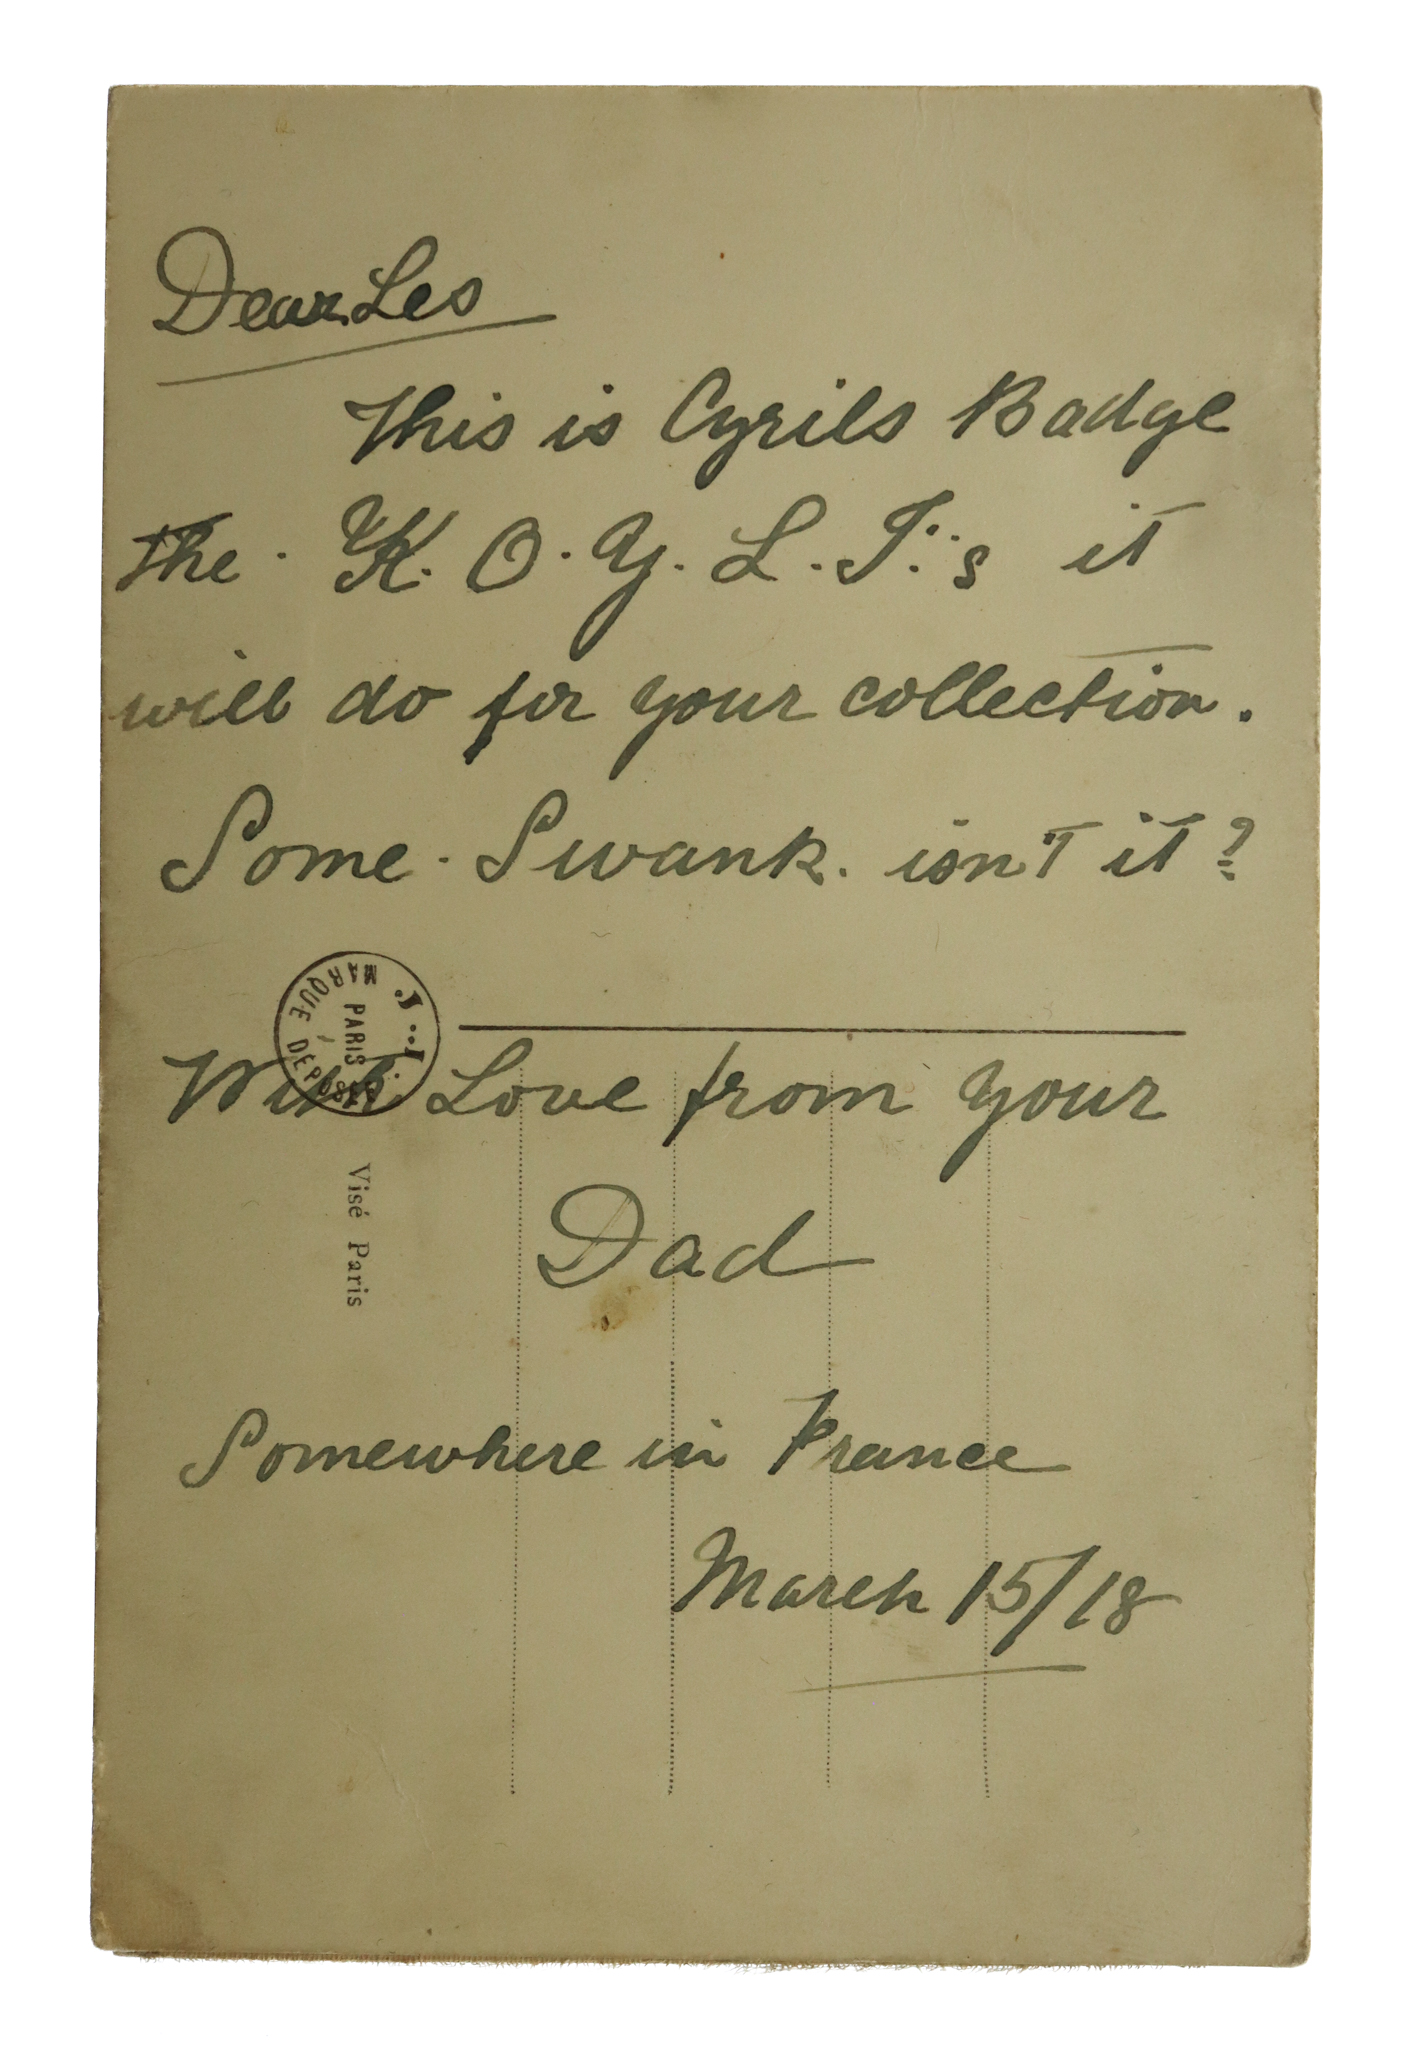 Dear Les
This is Cyrils Badge
the. K. O. Y. L. I.'s it
will do for your collection.
Some. Swank. isn't it?
J. J.
MARQUE DÉPOSÉE
PARIS
With Love from your
Dad
Visé Paris
Somewhere in France
March 15/18